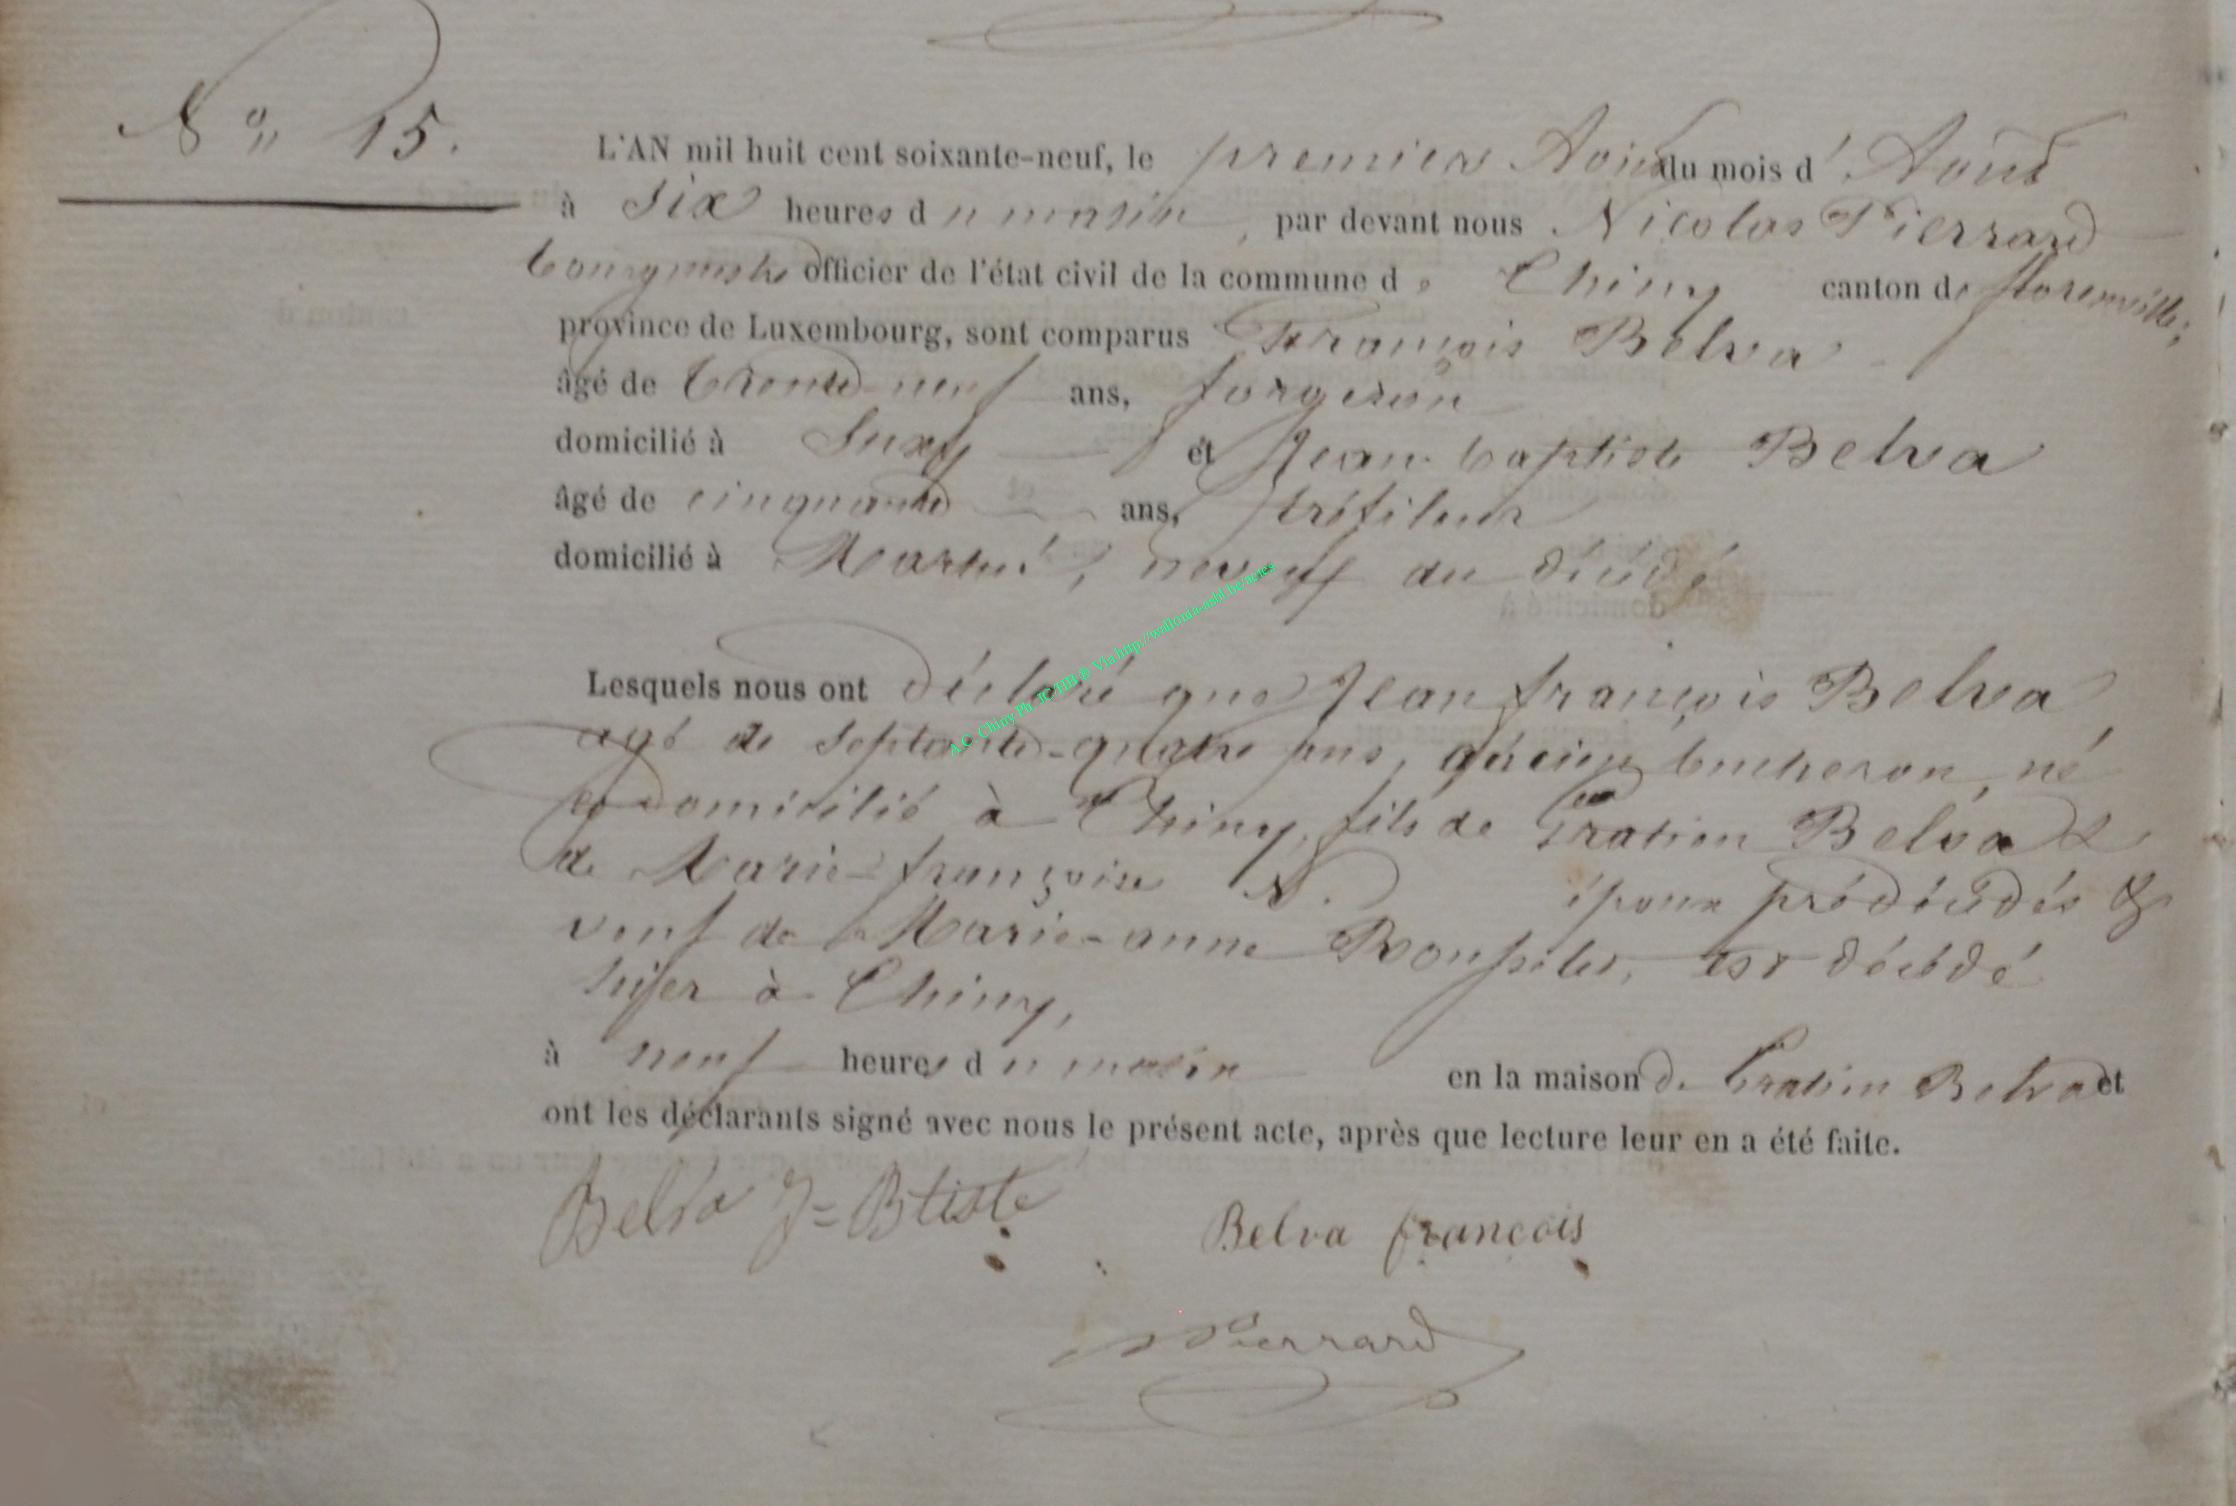 No 15.
L'AN mil huit cent soixante-neuf, le premier Aout du mois d'Aout
à six heures du matin, par devant nous Nicolas Pierrard
bourgmestre officier de l'état civil de la commune de Chiny canton de florenville,
province de Luxembourg, sont comparus François Belva
âgé de trente-neuf ans, forgeron
domicilié à Suxy et Jean-baptiste Belva
âgé de cinquante ans, tréfileur
domicilié à Martué, neveux du décédé
Lesquels nous ont déclaré que Jean françois Belva
agé de septante-quatre ans, ancien bucheron, né
et domicilié à Chiny, fils de Gratien Belva &
de Marie-françoise N. époux prédécédés &
veuf de Marie-anne est décédé
hier à Chiny,
à neuf heures du matin en la maison de Gratien Belva et
ont les déclarants signé avec nous le présent acte, après que lecture leur en a été faite.
Belva J=Btiste
Belva françois
Pierrard
A.C. Chiny Ph. JCTHB @ Via.http://wallonia-asbl.be/actes